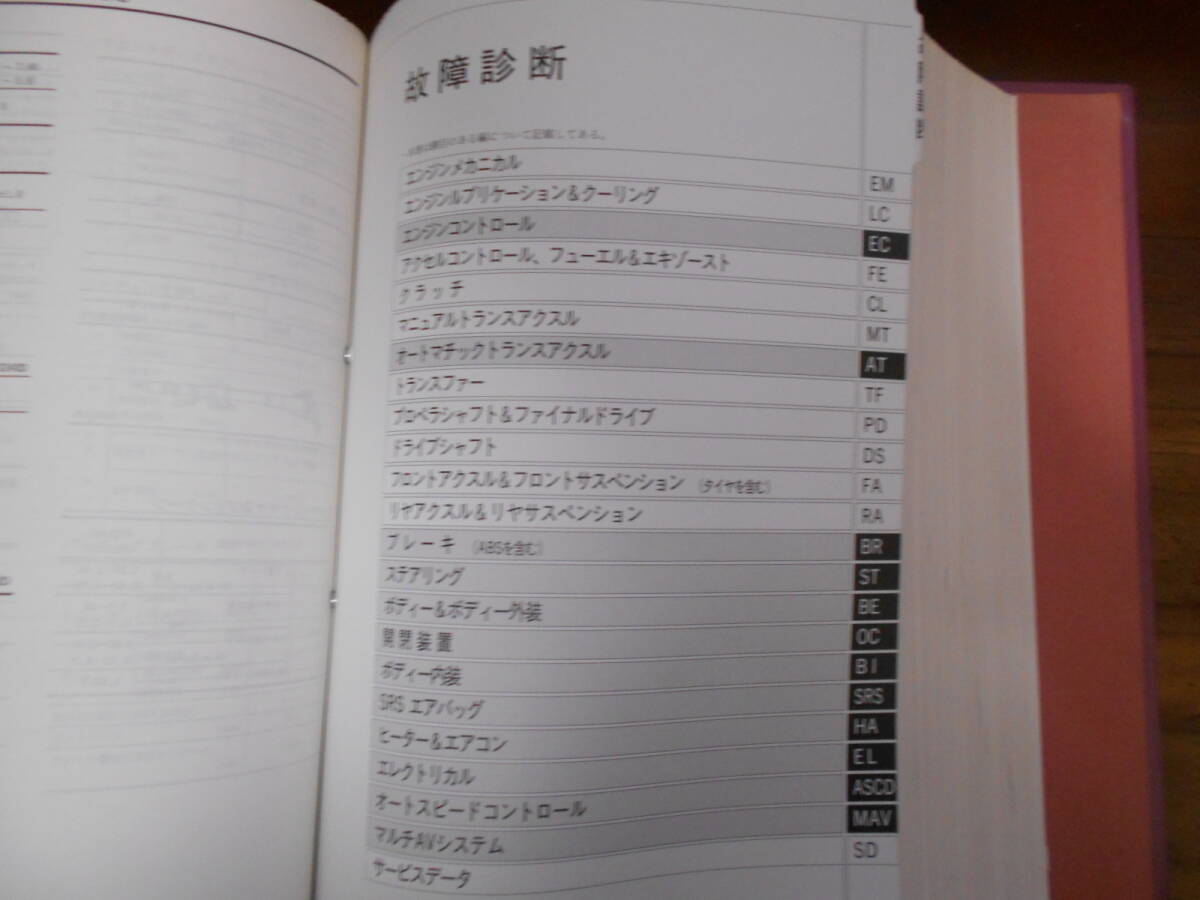 故障診断
エンジンメカニカル EM
エンジンルブリケーション&クーリング LC
エンジンコントロール EC
アクセルコントロール、フューエル&エキゾースト FE
クラッチ CL
マニュアルトランスアクスル MT
オートマチックトランスアクスル AT
トランスファー TF
プロペラシャフト&ファイナルドライブ PD
ドライブシャフト DS
フロントアクスル&フロントサスペンション (タイヤを含む) FA
リヤアクスル&リヤサスペンション RA
ブレーキ (ABSを含む) BR
ステアリング ST
ボディー&ボディー外装 BE
開閉装置 OC
ボディー内装 BI
SRS エアバッグ SRS
ヒーター&エアコン HA
エレクトリカル EL
オートスピードコントロール ASCD
マルチAVシステム MAV
サービスデータ SD